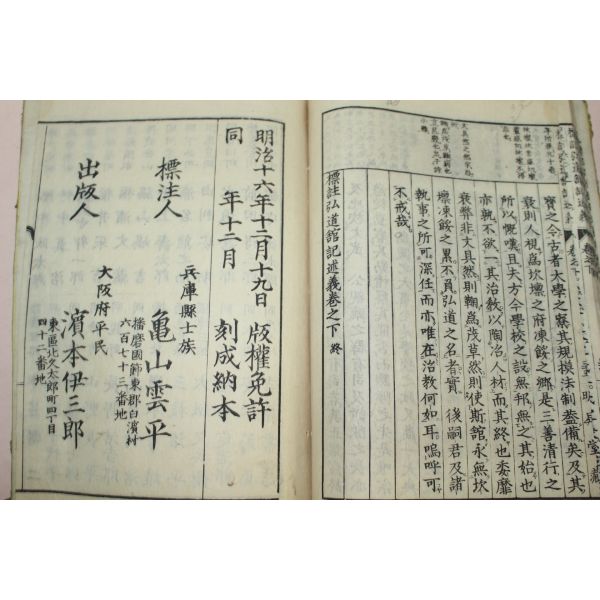 實之今古者大學之縻其規模法制葢備矣及其
衰則人視爲坎壈之府凍餒之鄉是三善清行之
所以慨嘆且夫方今學校之設無邦無之其始也
亦孰不欲一其治教以陶冶人材而其終也委靡
衰弊非文具然則鞠爲茂草然則使斯館永無坎
壈凍餒之累不負弘道之名者實後嗣君及諸
執事之所可深任而亦唯在治教何如耳嗚呼可
不戒哉
標註弘道館記述義卷之下終
明治十六年十二月十九日版權免許
同年十二月刻成納本
標注人
兵庫縣士族
龜山雲平
播磨國飾東郡白濱村
六百七十三番地
出版人
大阪府平民
濱本伊三郎
東區北久太郎町四丁目
四十二番地